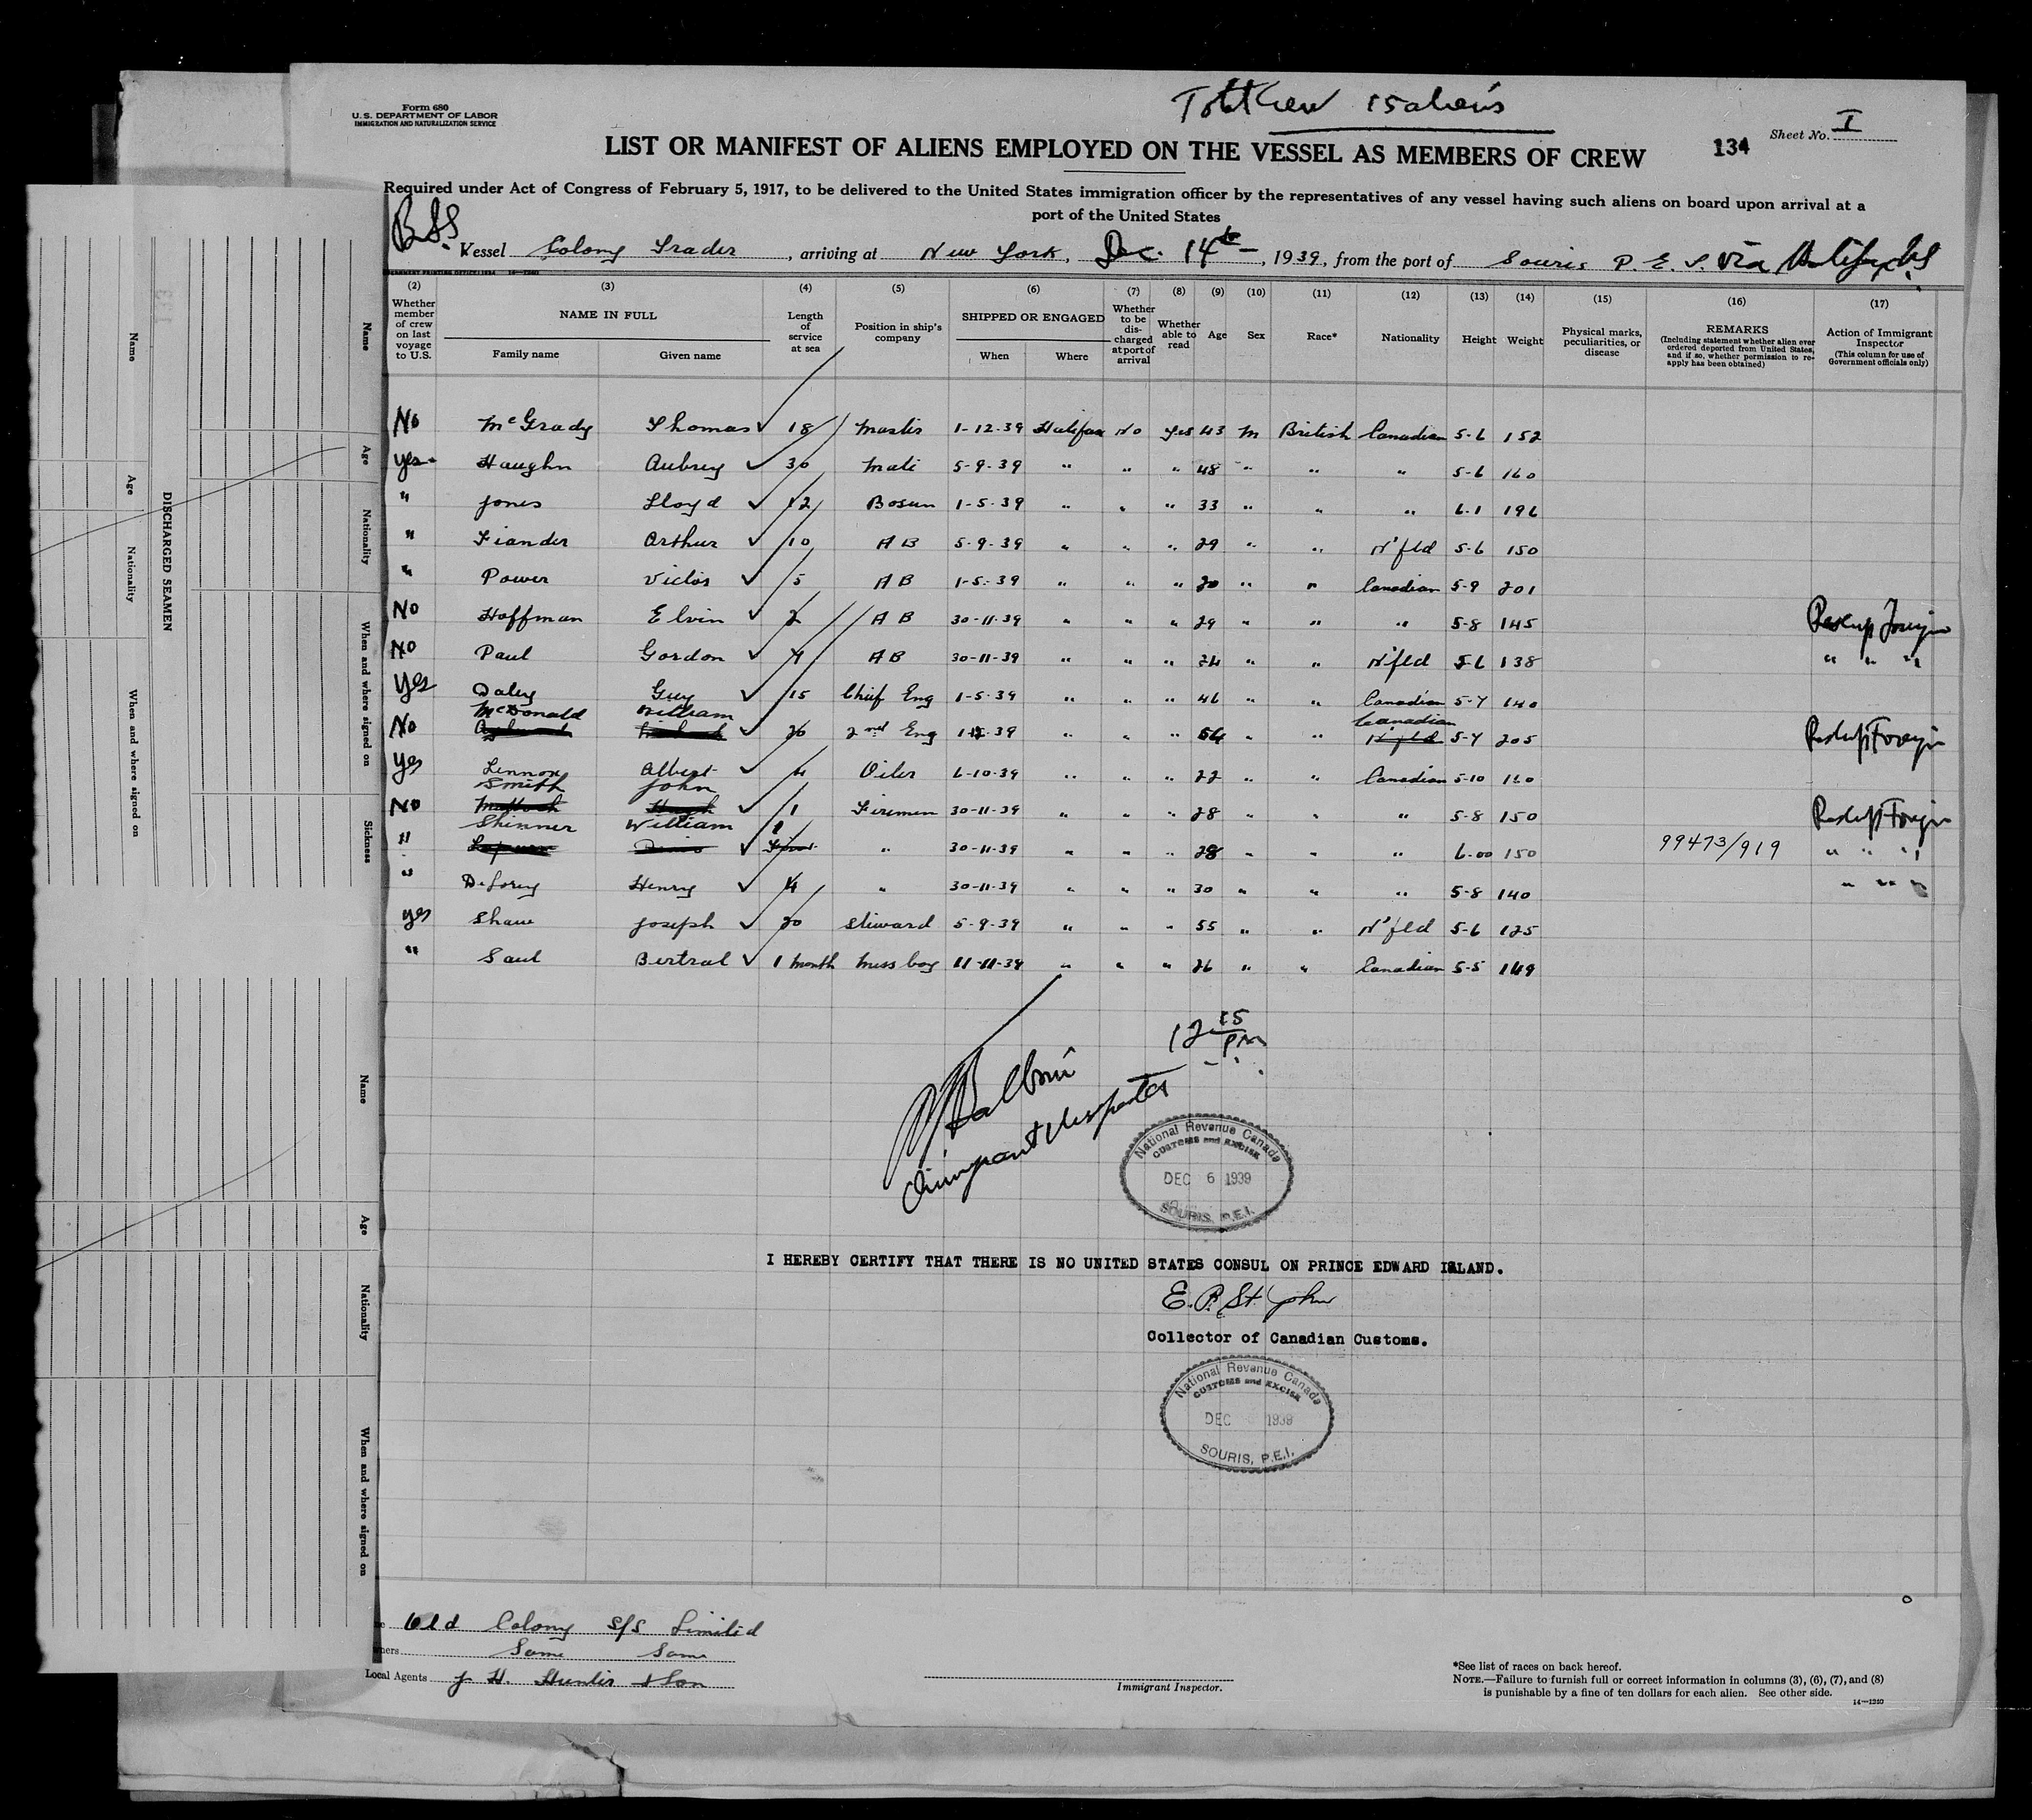 Form 680
U.S. DEPARTMENT OF LABOR
IMMIGRATION AND NATURALIZATION SERVICE
15 aliens
Sheet No. I
134
LIST OR MANIFEST OF ALIENS EMPLOYED ON THE VESSEL AS MEMBERS OF CREW
Required under Act of Congress of February 5, 1917, to be delivered to the United States immigration officer by the representatives of any vessel having such aliens on board upon arrival at a
port of the United States
Vessel Colony Trader, arriving at New York, Dec. 14th, 1939, from the port of Souris P. E. I. via Halifax NS
(2) (3) (4) (5) (6) (7) (8) (9) (10) (11) (12) (13) (14) (15) (16) (17)
Whether member of crew on last voyage to U.S. NAME IN FULL Length of service at sea Position in ship's company SHIPPED OR ENGAGED Whether to be discharged at port of arrival Whether able to read Age Sex Race* Nationality Height Weight Physical marks, peculiarities, or disease REMARKS (Including statement whether alien ever ordered deported from United States, and if so, whether permission to reapply has been obtained) Action of Immigrant Inspector (This column for use of Government officials only)
Family name Given name When Where
No McGrady Thomas 18 Master 1-12-39 Halifax No Yes 43 M British Canadian 5-6 152
Yes Haughn Aubrey 30 Mate 5-9-39 " " " 48 " " " 5-6 160
" Jones Lloyd 12 Bosun 1-5-39 " " " 33 " " " 6-1 196
" Fiander Arthur 10 AB 5-9-39 " " " 29 " " N'fld 5-6 150
" Power Victor 5 AB 1-5-39 " " " 20 " " Canadian 5-9 201
No Hoffman Elvin 2 AB 30-11-39 " " " 29 " " " 5-8 145
No Paul Gordon 4 AB 30-11-39 " " " 24 " " N'fld 5-6 138 " " "
Yes Daley Guy 15 Chief Eng 1-5-39 " " " 46 " " Canadian 5-7 140
McDonald William Canadian
No 20 2nd Eng 39 " " " 54 " " N'fld 5-7 205 Foreign
Yes Lennox Albert 4 Oiler 6-10-39 " " " 22 " " Canadian 5-10 160
Smith John
No Hugh 1 Firemen 30-11-39 " " " 28 " " " 5-8 150 Foreign
Skinner William 1
" " 30-11-39 " " " 28 " " " 6-00 150 99473/919 " " "
" Henry 4 " 30-11-39 " " " 30 " " " 5-8 140 " " "
Yes Shaw Joseph 20 Steward 5-9-39 " " " 55 " " N'fld 5-6 125
" Saul Bertral 1 month Mess boy 11-11-39 " " " 26 " " Canadian 5-5 149
12 15 PM
Immigrant Inspector
National Revenue Canada
CUSTOMS and EXCISE
DEC 6 1939
SOURIS, P.E.I.
I HEREBY CERTIFY THAT THERE IS NO UNITED STATES CONSUL ON PRINCE EDWARD ISLAND.
E. P. St. John
Collector of Canadian Customs.
National Revenue Canada
CUSTOMS and EXCISE
DEC 1939
SOURIS, P.E.I.
Old Colony S/S Limited
Same Same
Local Agents J. H. Hunter & Son
Immigrant Inspector.
*See list of races on back hereof.
NOTE.—Failure to furnish full or correct information in columns (3), (6), (7), and (8)
is punishable by a fine of ten dollars for each alien. See other side.
14—1240
DISCHARGED SEAMEN
Name
Age
Nationality
When and where signed on
Name
Age
Nationality
When and where signed on
Sickness
Name
Age
Nationality
When and where signed on